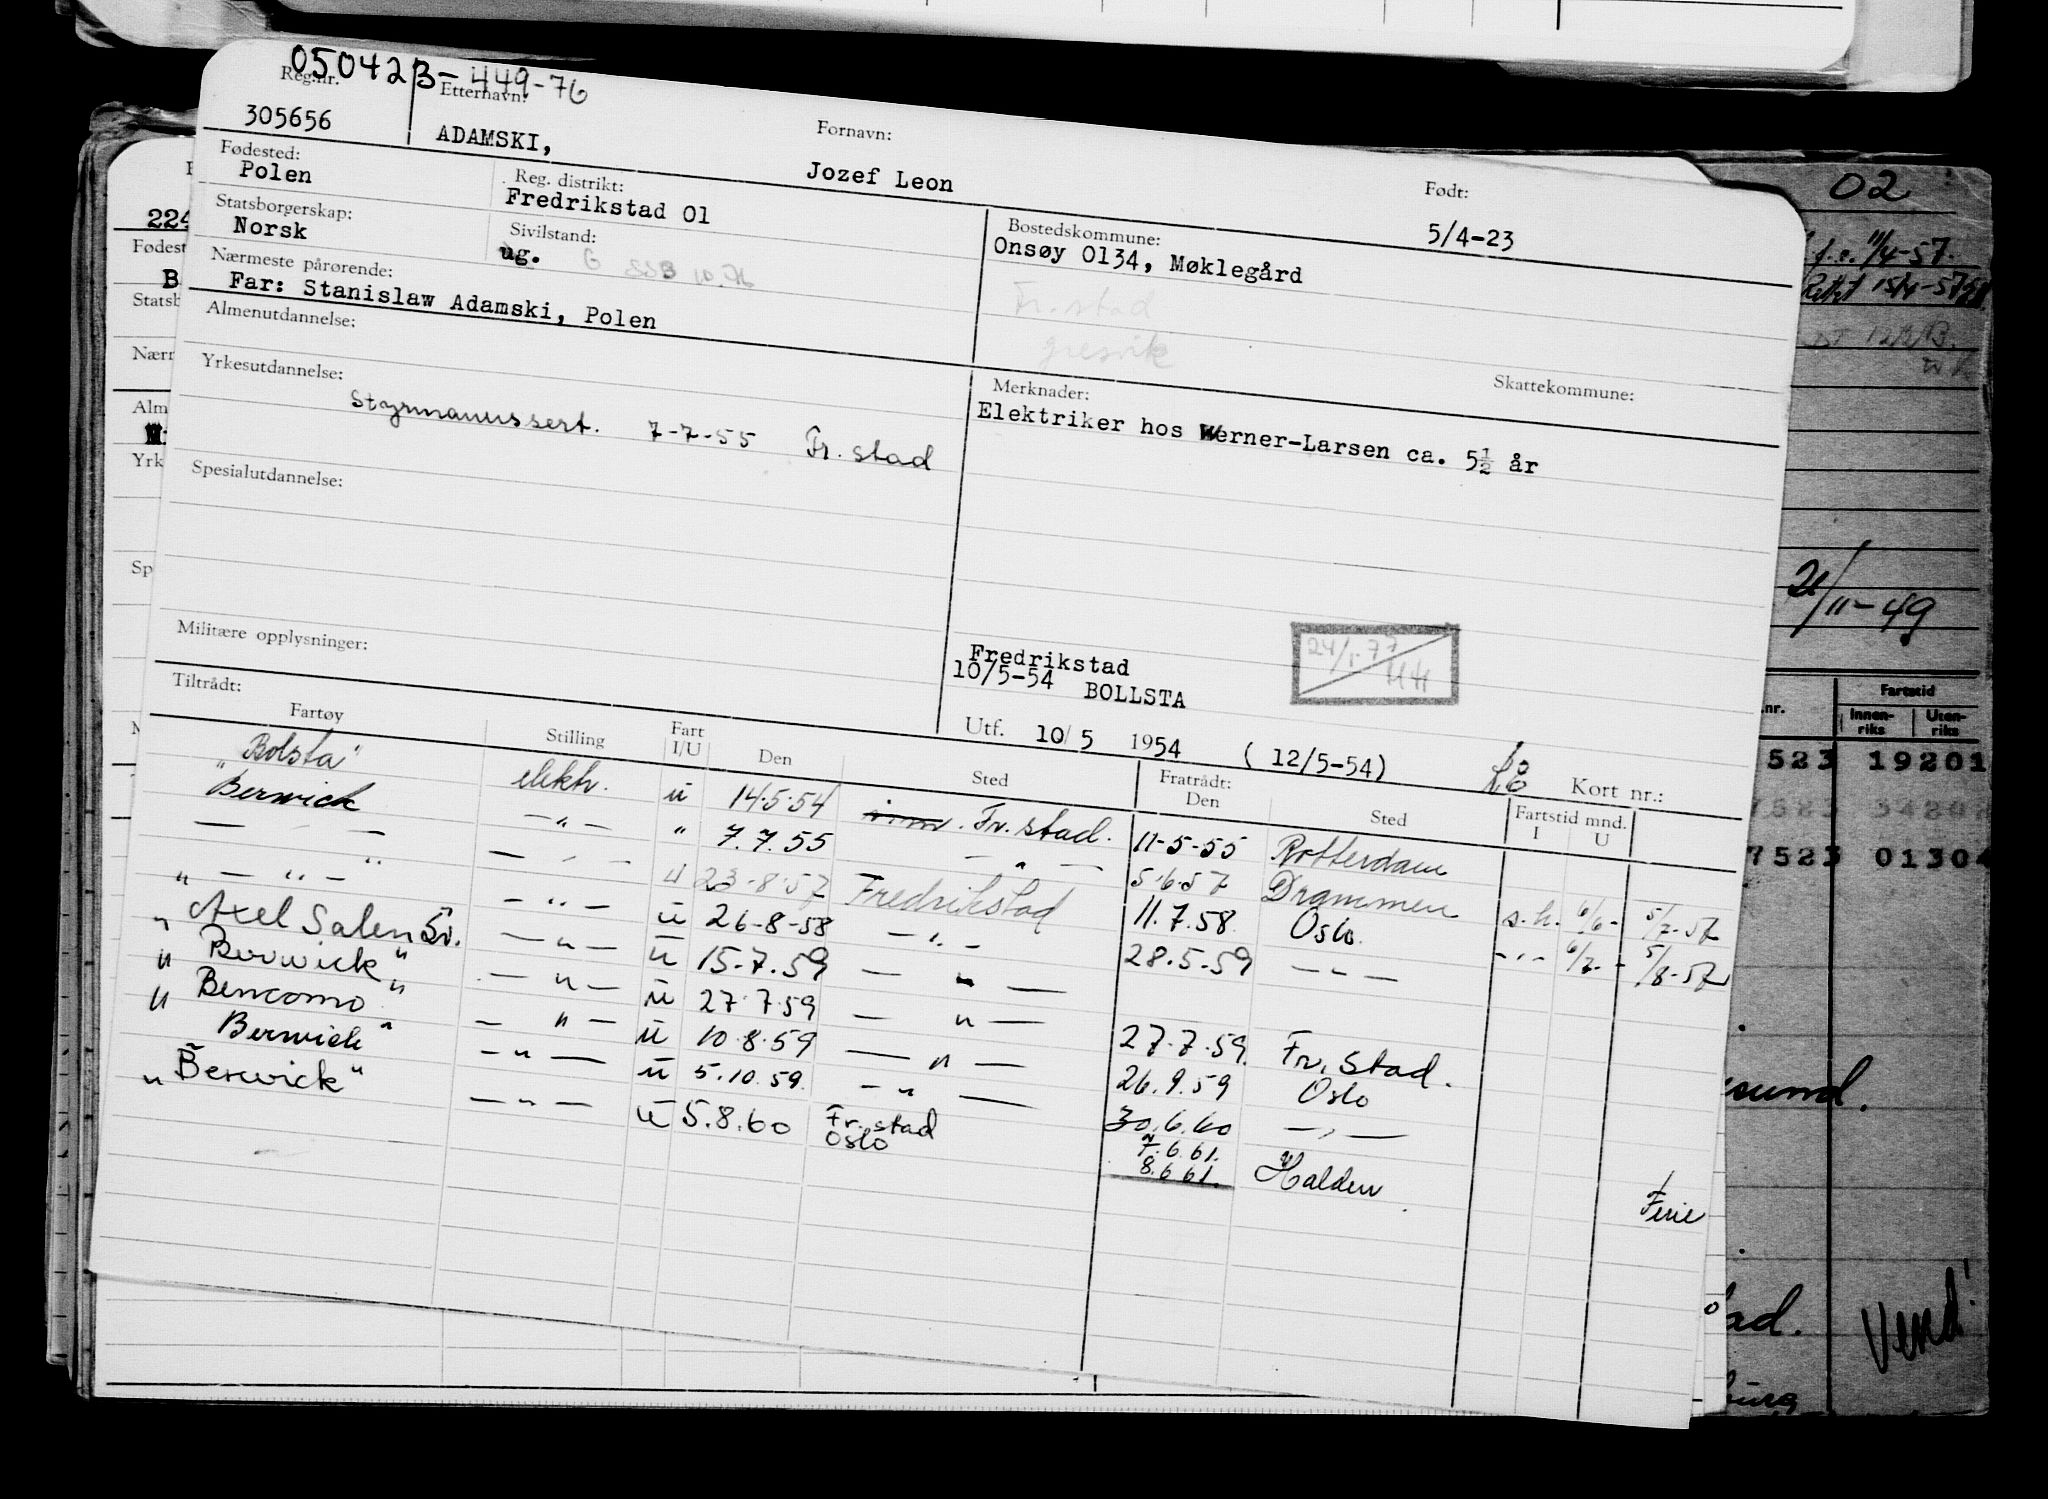 050423-449-76
Reg.nr. Etternavn: Fornavn: Født:
305656 ADAMSKI, Jozef Leon 5/4-23
Fødested: Reg. distrikt: Bostedskommune:
Polen Fredrikstad 01 Onsøy 0134, Møklegård
Statsborgerskap: Sivilstand:
Norsk ug. G SSB 10.76
Fr.stad
Gresvik
Nærmeste pårørende: Skattekommune:
Far: Stanislaw Adamski, Polen
Almenutdannelse: Merknader:
Elektriker hos Werner-Larsen ca. 5½ år
Yrkesutdannelse:
Styrmannssert. 7-7-55 Fr. stad
Spesialutdannelse:
Militære opplysninger:
Fredrikstad
10/5-54 BOLLSTA
24/1-77
Utf. 10/5 1954 (12/5-54) Kort nr.:
Tiltrådt: Fratrådt:
Fartøy Stilling Fart I/U Den Sted Den Sted Fartstid mnd. I U
"Bolsta" elektr. u 14.5.54 Fr. stad. 11-5-55 Rotterdam
Berwick -"- " 7.7.55 - " - 5.6.57 Drammen s.h. 6/6- 5/7-57
— " — — " — u 23.8.57 Fredrikstad 11.7.58. Oslo. -"- 6/7- 5/8-57
" — " — - " - u 26-8-58 - " - 28.5-59 - " -
" Axel Salen Sv. — " — u 15-7.59 — " —
" Berwick " — " — u 27.7.59 — " — 27.7.59. Fr. Stad.
" Bencomo " — " — u 10.8.59 — " — 26.9.59 Oslo
Berwick " - " — u 5.10.59. - " — 30.6.60 — " —
" Berwick " — " — u 5.8.60 Fr. stad
Oslo
7.6.61.
8.6 61. Halden Ferie
02
11/4-57.
15/4-57
21/11-49
.nr. Fartstid
Innen-riks Uten-riks
523 19201
7523 34202
7523 01304
sund.
Vend!
224
Fødest
Statsb
Nærm
Alm
Yrk
Sp